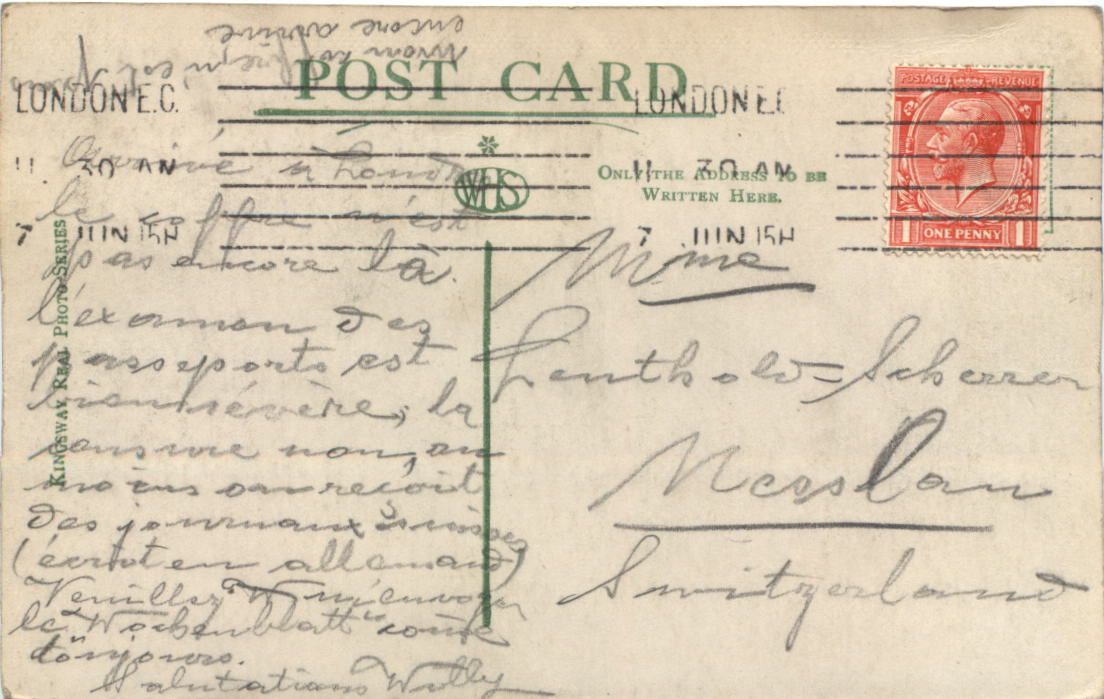 POST CARD
LONDON E.C.
11 30 AM
7 JUN 15
LONDON E.C.
11 30 AM
7 JUN 15
POSTAGE REVENUE
1 ONE PENNY 1
WHS
ONLY THE ADDRESS TO BE
WRITTEN HERE.
KINGSWAY REAL PHOTO SERIES
Arrivé à
le coffre n'est
pas encore là.
l'examen des
passeports est
bien sévère, la
censure non, au
moins on reçoit
des journaux suisses
(écrit en allemand)
Veuillez m'envoyer
le "Wochenblatt" comme
toujours.
Salutations Willy
mon
est pas
encore arrivé
Mme
Leuthold-Scherrer
Nesslau
Switzerland